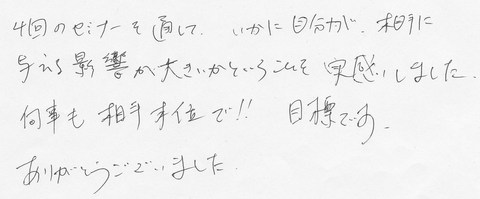 4回のセミナーを通して、いかに自分が、相手に
与える影響が大きいかということを実感しました。
何事も相手本位で!! 目標です。
ありがとうございました。